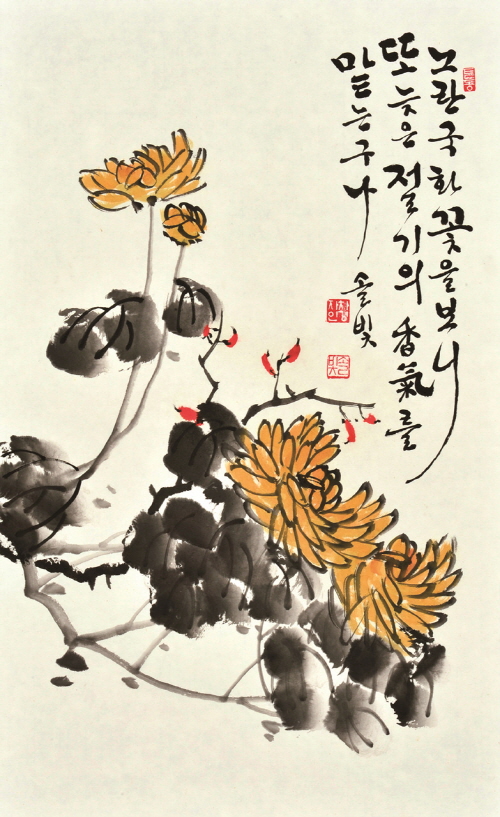 노란 국화꽃을 보니
또 늦은 절기의 香氣를
맡는구나
솔빛